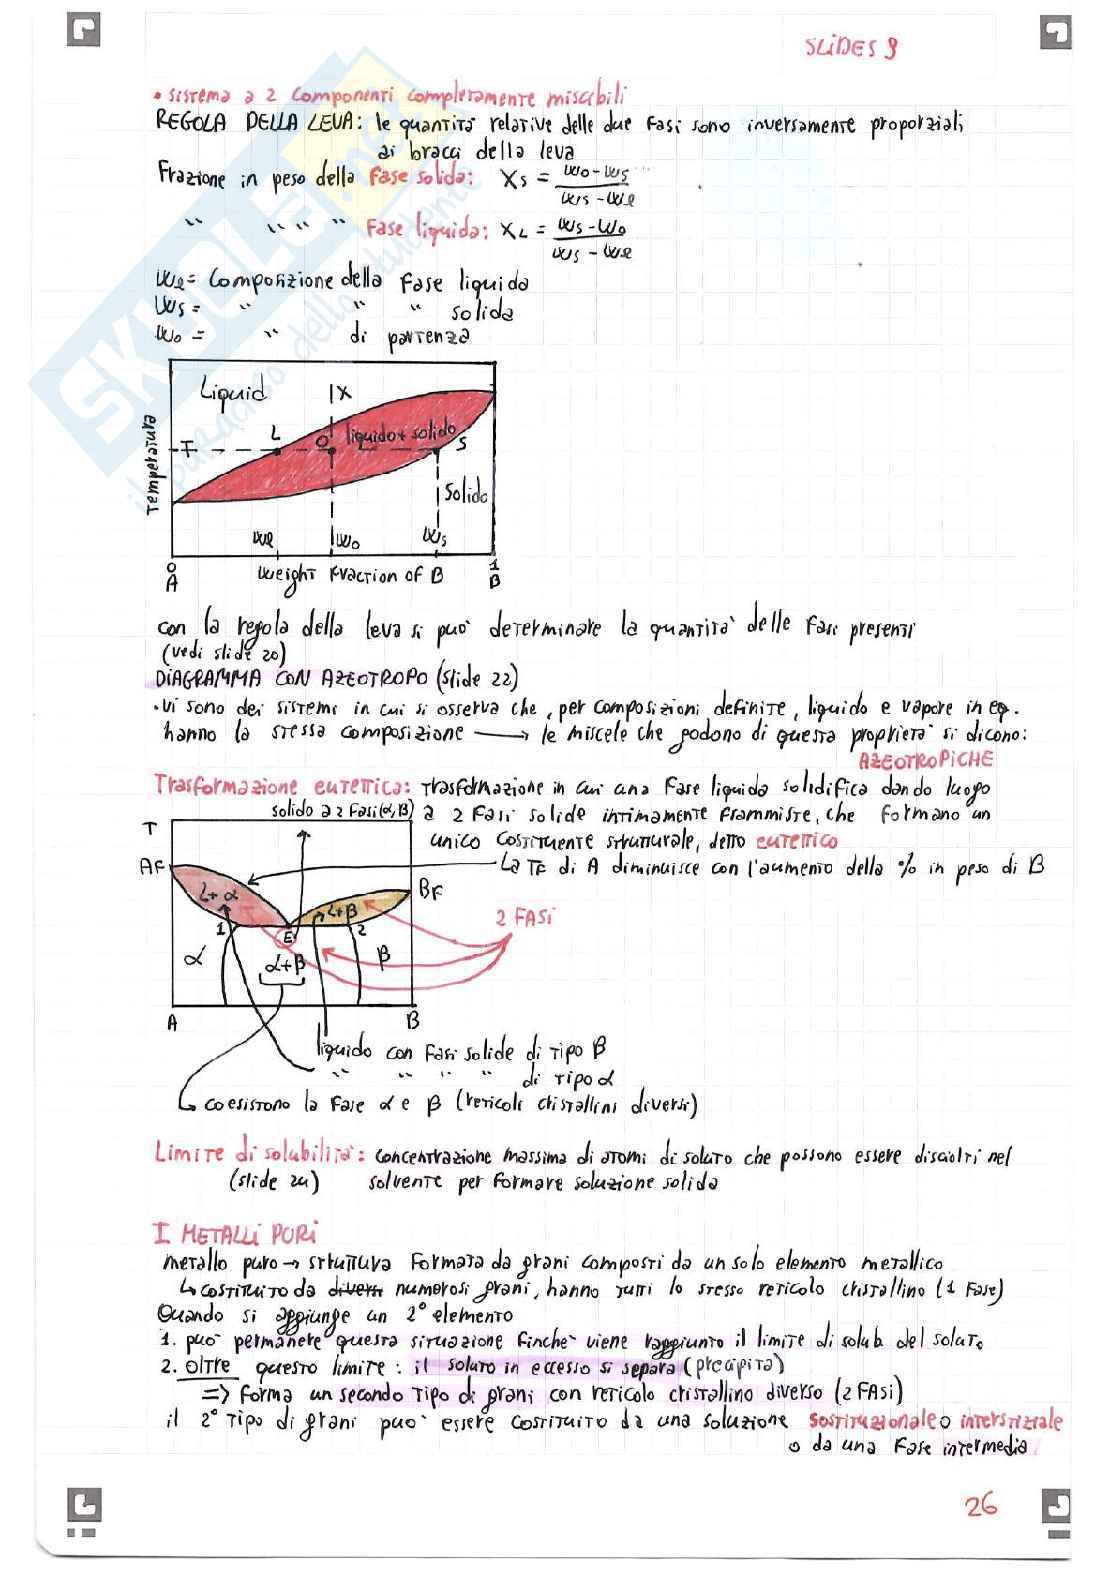 SLIDES 9
• SISTEMA a 2 componenti completamente miscibili
REGOLA DELLA LEVA: le quantità relative delle due fasi sono inversamente proporziali
ai bracci della leva
Frazione in peso della fase solida: Xs = wo-ws / ws-wl
" " " " fase liquida: XL = ws-wo / ws-wl
wl = composizione della fase liquida
ws = " " " solida
wo = " di partenza
Liquid
X
L
O
liquido+solido
T
S
Temperature
Solido
wl wo ws
0 1
A Weight fraction of B B
con la regola della leva si può determinare la quantità delle fasi presenti
(vedi slide 20)
DIAGRAMMA CON AZEOTROPO (slide 22)
• Vi sono dei sistemi in cui si osserva che, per composizioni definite, liquido e vapore in eq.
hanno la stessa composizione → le miscele che godono di questa proprietà si dicono:
AZEOTROPICHE
Trasformazione eutettica: trasformazione in cui una fase liquida solidifica dando luogo
solido a 2 fasi (α,β) a 2 fasi solide intimamente frammiste, che formano un
unico costituente strutturale, detto eutettico
T
AF
La TF di A diminuisce con l'aumento della % in peso di B
BF
L+α
L+β
2 FASI
1 E 2
α α+β β
A B
liquido con fasi solide di tipo β
" " " " di tipo α
↳ coesistono la fase α e β (reticoli cristallini diversi)
Limite di solubilità: concentrazione massima di atomi di soluto che possono essere disciolti nel
(slide 24) solvente per formare soluzione solida
I METALLI PURI
metallo puro → struttura formata da grani composti da un solo elemento metallico
↳ costituito da diversi numerosi grani, hanno tutti lo stesso reticolo cristallino (1 fase)
Quando si aggiunge un 2° elemento
1. può permanere questa situazione finchè viene raggiunto il limite di solub. del soluto
2. oltre questo limite: il soluto in eccesso si separa (precipita)
=> forma un secondo tipo di grani con reticolo cristallino diverso (2 FASI)
il 2° tipo di grani può essere costituito da una soluzione sostituzionale o interstiziale
o da una fase intermedia
26
SKUOLA.net
il paradiso dello studente